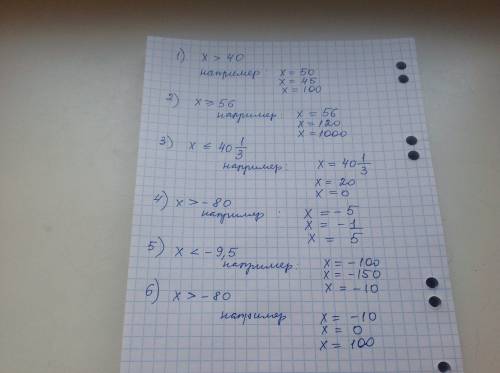 1) x > 40
например x = 50
x = 45
x = 100
2) x ≥ 56
например: x = 56
x = 120
x = 1000
3) x ≤ 40 1/3
например: x = 40 1/3
x = 20
x = 0
4) x > -80
например: x = -5
x = -1
x = 5
5) x < -9,5
например: x = -100
x = -150
x = -10
6) x > -80
например x = -10
x = 0
x = 100